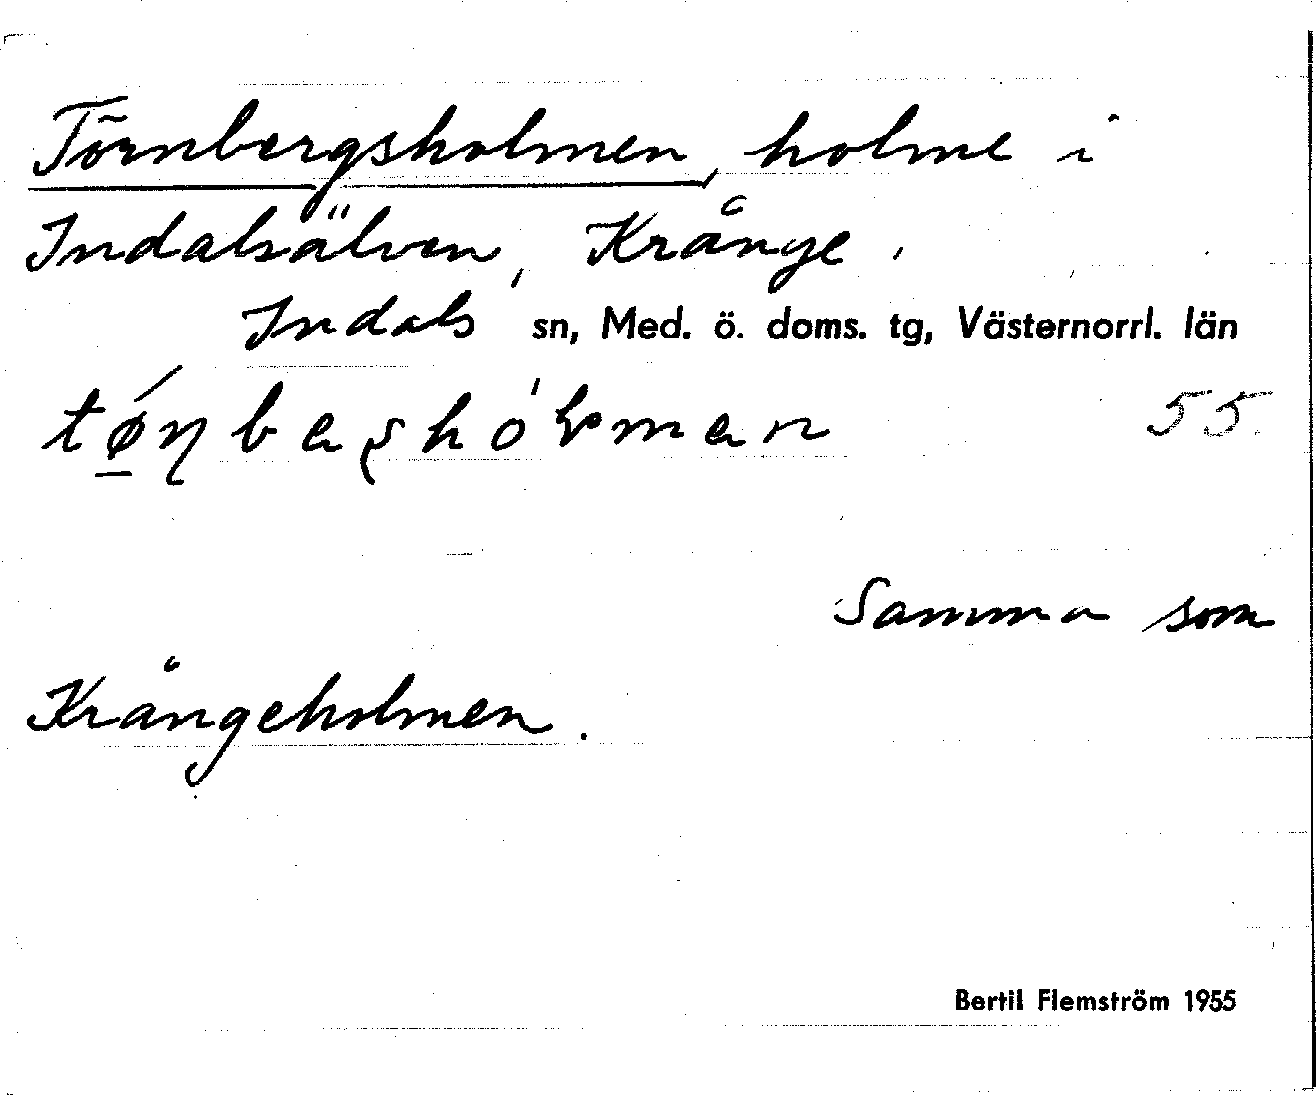 Törnbergsholmen, holme i
Indalsälven, Krånge.
Indals sn, Med. ö. doms. tg, Västernorrl. län
55.
Samma som
Krångeholmen.
Bertil Flemström 1955